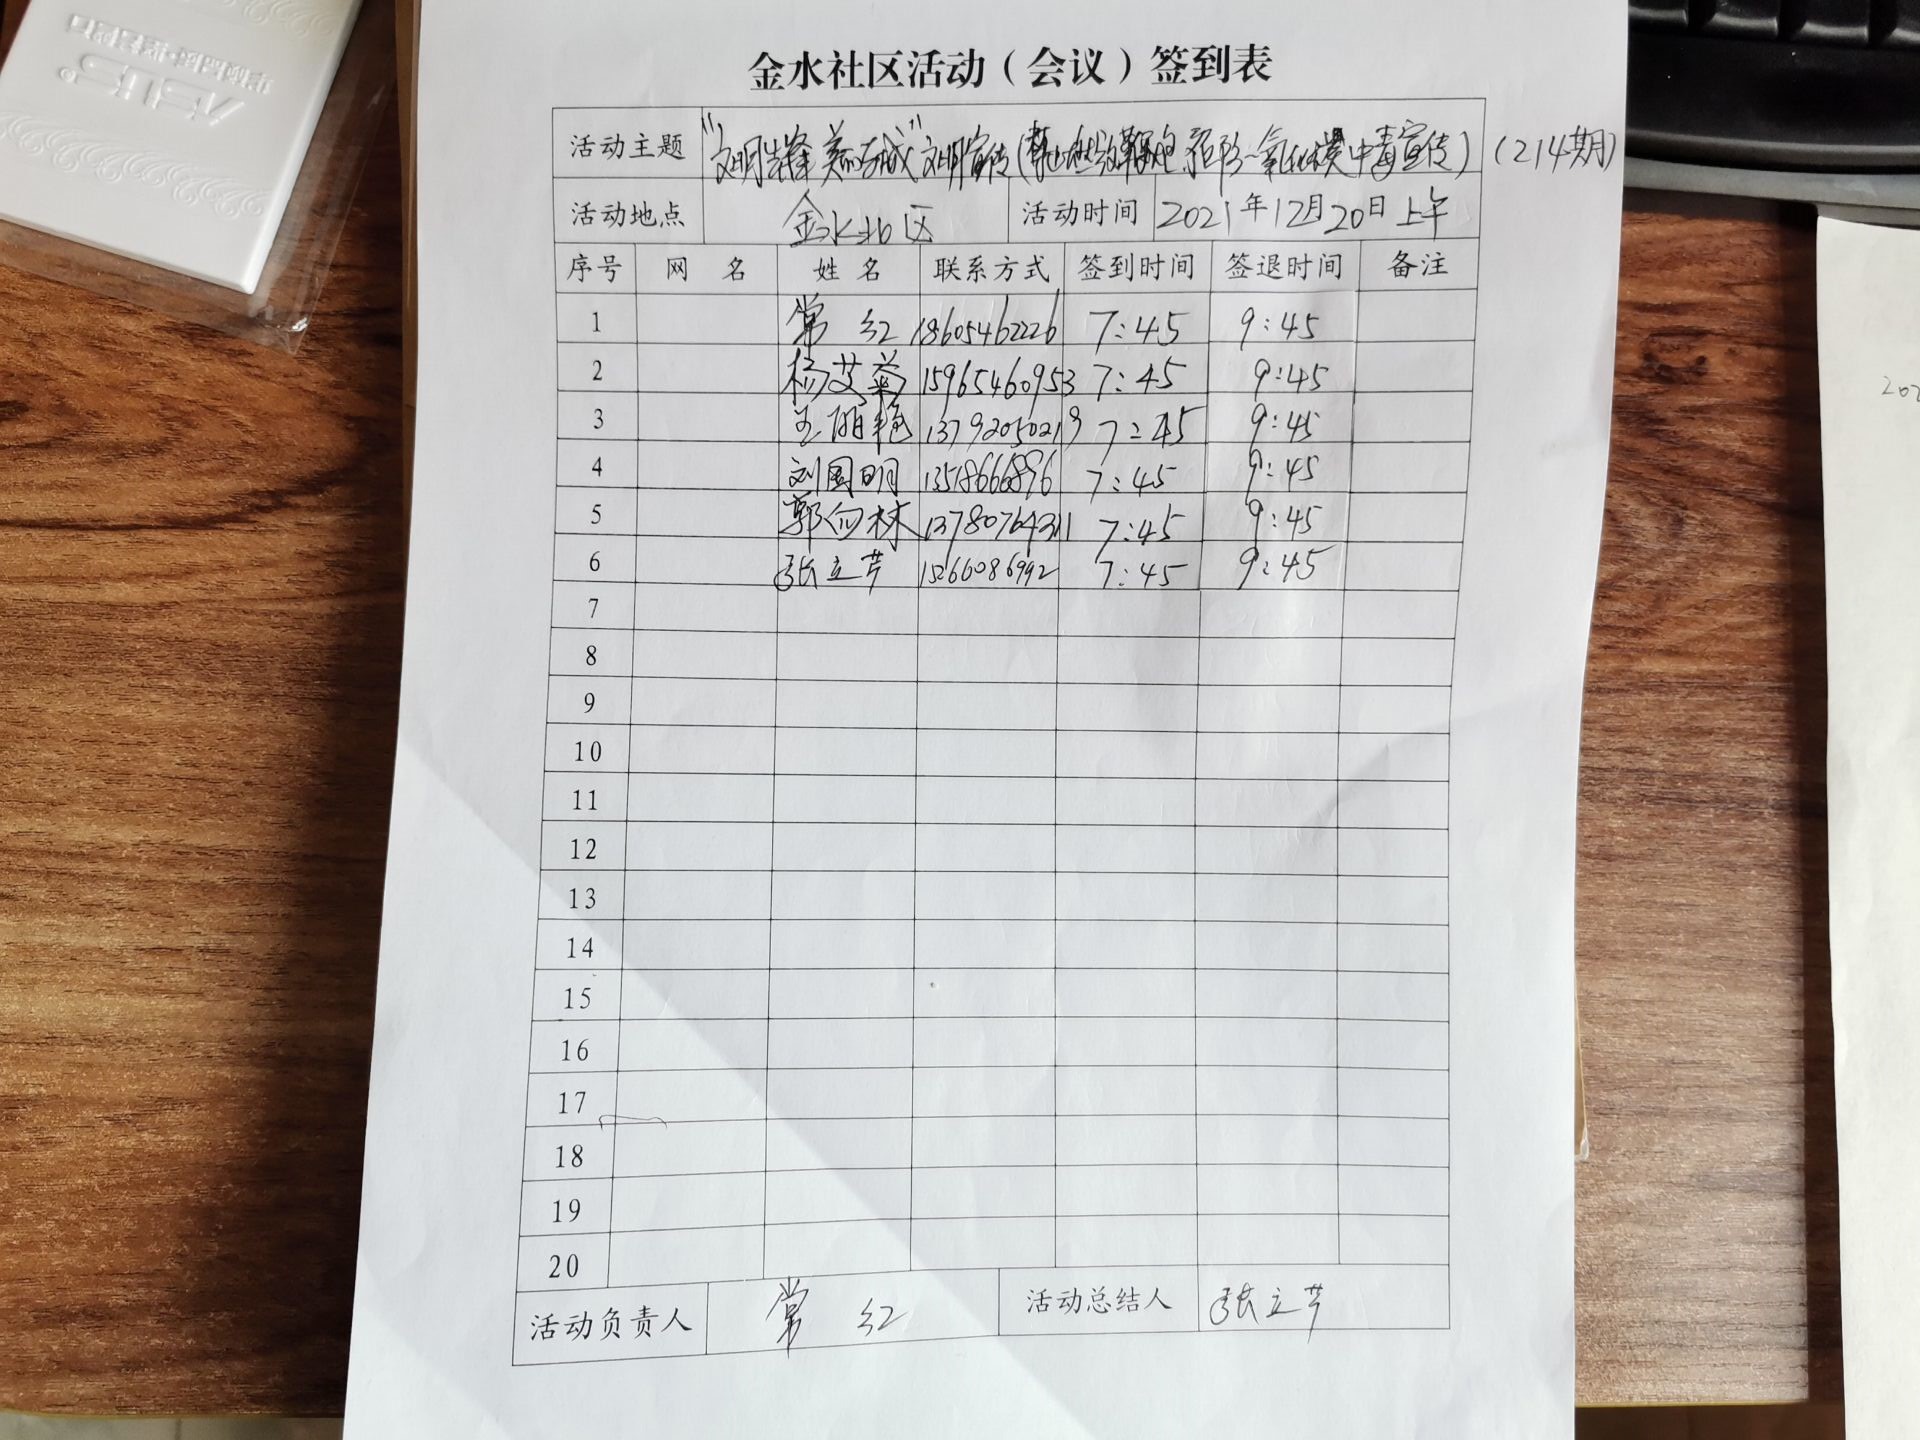 ASUS
金水社区活动（会议）签到表
活动主题 "文明先锋 美丽东城"文明宣传(禁止燃放鞭炮 预防一氧化碳中毒宣传) (214期)
活动地点 金水北区 活动时间 2021年12月20日上午
序号 网 名 姓 名 联系方式 签到时间 签退时间 备注
1 常红 18605462226 7:45 9:45
2 杨艾菊 15965460953 7:45 9:45
3 王丽艳 13792050219 7:45 9:45
4 刘国明 13518666896 7:45 9:45
5 郭向林 13780764311 7:45 9:45
6 张立芹 15266086992 7:45 9:45
7
8
9
10
11
12
13
14
15
16
17
18
19
20
活动负责人 常红 活动总结人 张立芹
202